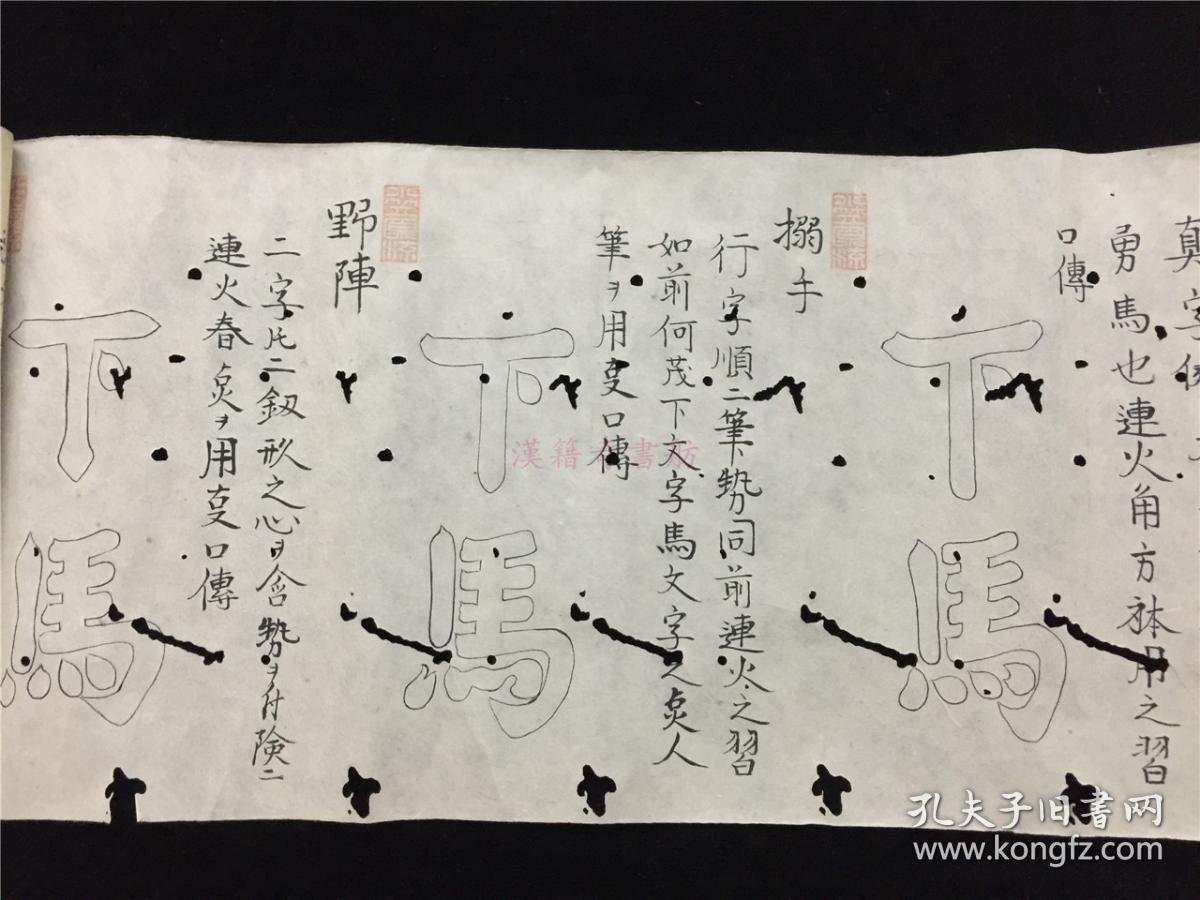 真字
勇馬也連火角方
用之習
口傳
下馬
搦手
行字順二筆勢同前連火之習
如前何茂下文字馬文字之
人
筆ヲ用
口傳
下馬
野陣
二字
二釼形之心ヲ含勢ヲ付険ニ
連火春
ヲ用
口傳
下馬
漢籍
書舫
孔夫子旧书网
www.kongfz.com